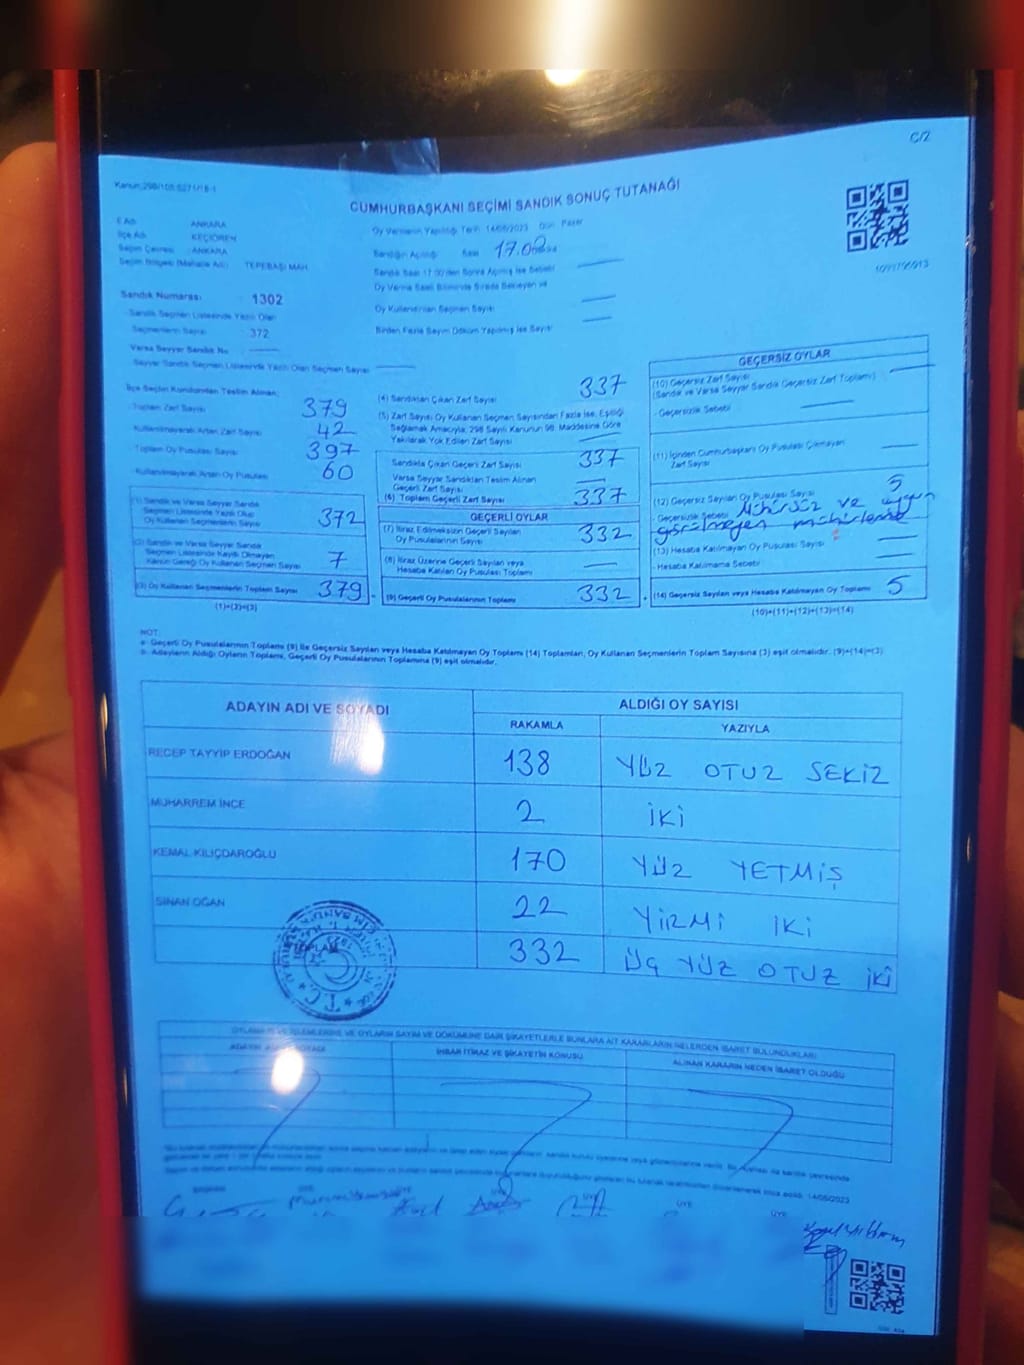 C/2
CUMHURBAŞKANI SEÇİMİ SANDIK SONUÇ TUTANAĞI
İl Adı ANKARA
İlçe Adı KEÇİÖREN
Seçim Çevresi : ANKARA
Seçim Bölgesi (Mahalle Adı) : TEPEBAŞI MAH.
Oy Vermenin Yapıldığı Tarih 14/05/2023 Gün Pazar
Sandığın Açıldığı Saat 17.00
Sandık Saat 17:00'den Sonra Açılmış İse Sebebi
Oy Kullandırılan Seçmen Sayısı
Birden Fazla Sayım Döküm Yapılmış İse Sayısı
Sandık Numarası : 1302
Sandık Seçmen Listesinde Yazılı Olan
Seçmenlerin Sayısı : 372
Varsa Seyyar Sandık No
Seyyar Sandık Seçmen Listesinde Yazılı Olan Seçmen Sayısı
İlçe Seçim Kurulundan Teslim Alınan;
Toplam Zarf Sayısı 379
Kullanılmayarak Artan Zarf Sayısı 42
Toplam Oy Pusulası Sayısı 397
Kullanılmayarak Artan Oy Pusulası 60
(1) Sandık ve Varsa Seyyar Sandık
Seçmen Listesinde Yazılı Olup
Oy Kullanan Seçmenlerin Sayısı 372
(2) Sandık ve Varsa Seyyar Sandık
Seçmen Listesinde Kayıtlı Olmayan
Kanun Gereği Oy Kullanan Seçmen Sayısı 7
(3) Oy Kullanan Seçmenlerin Toplam Sayısı 379
(1)+(2)=(3)
(4) Sandıktan Çıkan Zarf Sayısı 337
(5) Zarf Sayısı Oy Kullanan Seçmen Sayısından Fazla İse, Eşitliği
Sağlamak Amacıyla, 298 Sayılı Kanunun 98. Maddesine Göre
Yakılarak Yok Edilen Zarf Sayısı
Sandıkta Çıkan Geçerli Zarf Sayısı 337
Varsa Seyyar Sandıktan Teslim Alınan
Geçerli Zarf Sayısı
(6) Toplam Geçerli Zarf Sayısı 337
GEÇERLİ OYLAR
(7) İtiraz Edilmeksizin Geçerli Sayılan
Oy Pusulalarının Sayısı 332
(8) İtiraz Üzerine Geçerli Sayılan veya
Hesaba Katılan Oy Pusulası Toplamı
(9) Geçerli Oy Pusulalarının Toplamı 332
GEÇERSİZ OYLAR
(10) Geçersiz Zarf Sayısı
(Sandık ve Varsa Seyyar Sandık Geçersiz Zarf Toplamı)
- Geçersizlik Sebebi
(11) İçinden Cumhurbaşkanı Oy Pusulası Çıkmayan
Zarf Sayısı
(12) Geçersiz Sayılan Oy Pusulası Sayısı 5
- Geçersizlik Sebebi Mühürsüz ve uygun
görülmeyen mühürleme
(13) Hesaba Katılmayan Oy Pusulası Sayısı
- Hesaba Katılmama Sebebi
(14) Geçersiz Sayılan veya Hesaba Katılmayan Oy Toplamı 5
(10)+(11)+(12)+(13)=(14)
NOT:
a- Geçerli Oy Pusulalarının Toplamı (9) ile Geçersiz Sayılan veya Hesaba Katılmayan Oy Toplamı (14) Toplamları, Oy Kullanan Seçmenlerin Toplam Sayısına (3) eşit olmalıdır. (9)+(14)=(3)
b- Adayların Aldığı Oyların Toplamı, Geçerli Oy Pusulalarının Toplamına (9) eşit olmalıdır.
ADAYIN ADI VE SOYADI ALDIĞI OY SAYISI
RAKAMLA YAZIYLA
RECEP TAYYİP ERDOĞAN 138 YÜZ OTUZ SEKİZ
MUHARREM İNCE 2 İKİ
KEMAL KILIÇDAROĞLU 170 YÜZ YETMİŞ
SİNAN OĞAN 22 YİRMİ İKİ
TOPLAM 332 ÜÇ YÜZ OTUZ İKİ
OYLAMA VE İŞLEMLERİNE VE OYLARIN SAYIM VE DÖKÜMÜNE DAİR ŞİKAYETLERLE BUNLARA AİT KARARLARIN NELERDEN İBARET BULUNDUKLARI
ADAYIN ADI SOYADI İHBAR İTİRAZ VE ŞİKAYETİN KONUSU ALINAN KARARIN NEDEN İBARET OLDUĞU
BAŞKAN ÜYE ÜYE ÜYE ÜYE ÜYE ÜYE